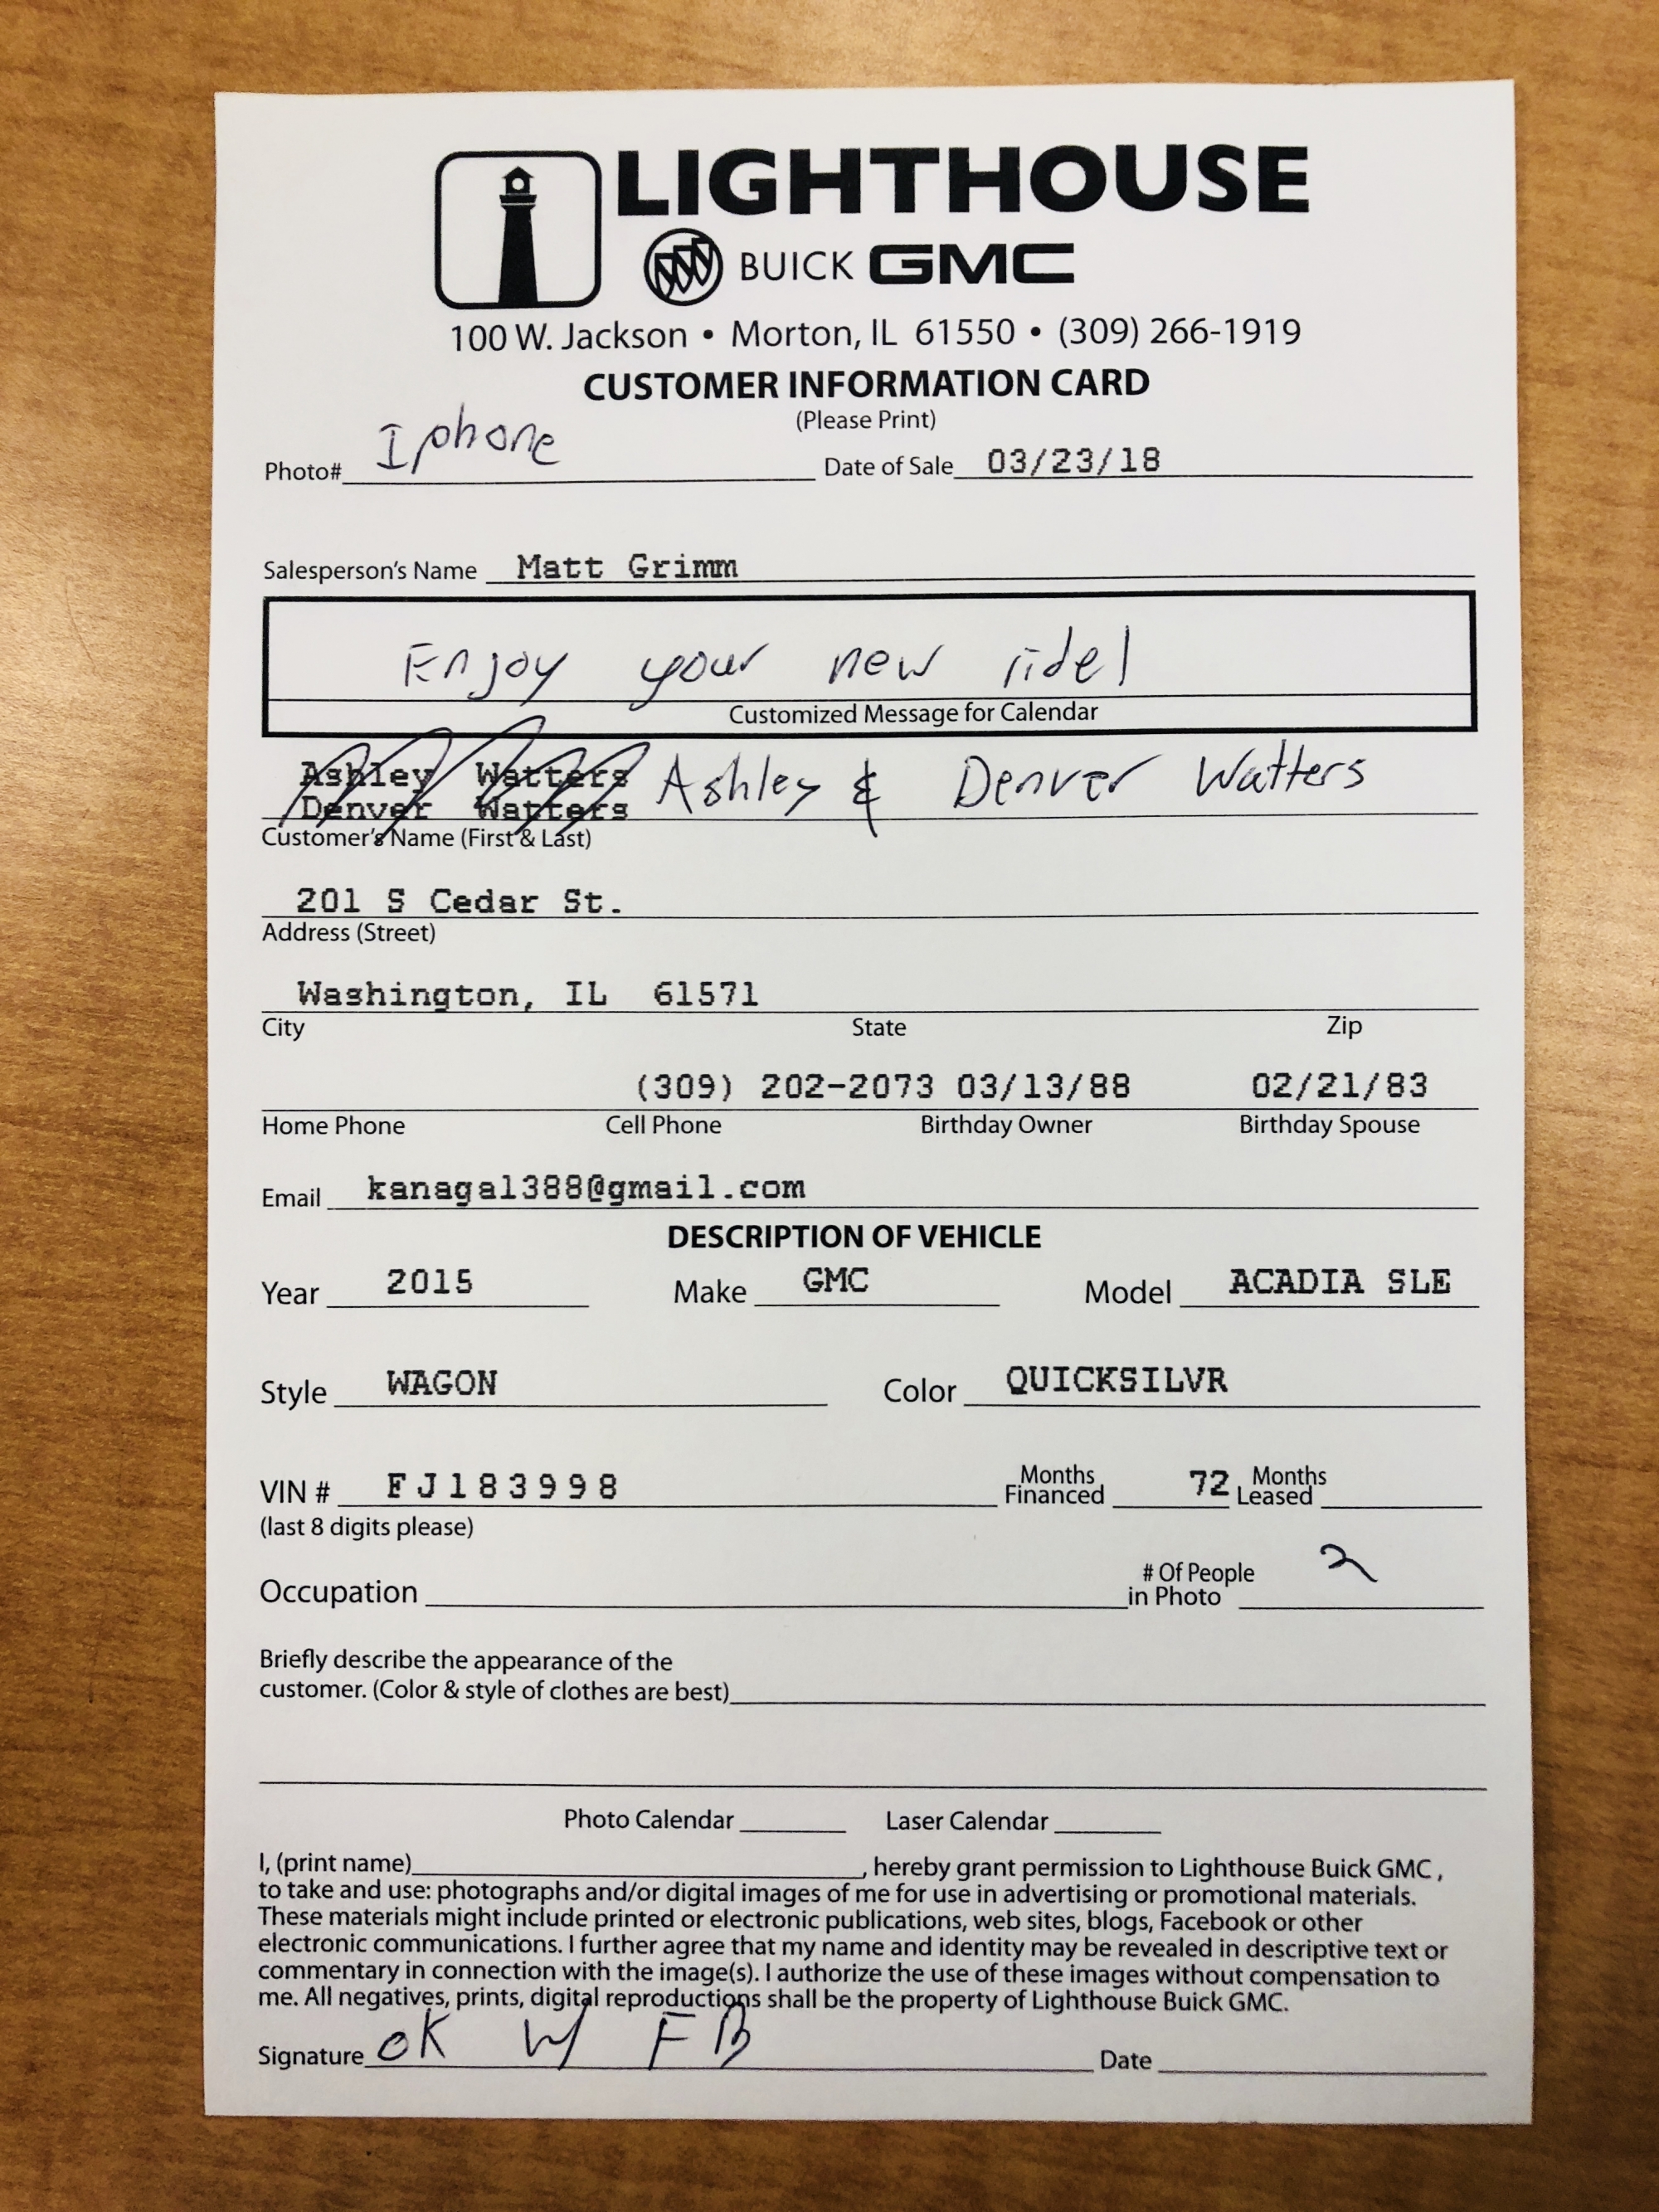 LIGHTHOUSE
BUICK GMC
100 W. Jackson • Morton, IL 61550 • (309) 266-1919
CUSTOMER INFORMATION CARD
(Please Print)
Photo# Iphone Date of Sale 03/23/18
Salesperson's Name Matt Grimm
Enjoy your new ride!
Customized Message for Calendar
Ashley Watters Ashley & Denver Watters
Denver Watters
Customer's Name (First & Last)
201 S Cedar St.
Address (Street)
Washington, IL 61571
City State Zip
(309) 202-2073 03/13/88 02/21/83
Home Phone Cell Phone Birthday Owner Birthday Spouse
Email kanaga1388@gmail.com
DESCRIPTION OF VEHICLE
Year 2015 Make GMC Model ACADIA SLE
Style WAGON Color QUICKSILVR
VIN # FJ183998 Months Financed 72 Months Leased
(last 8 digits please)
Occupation # Of People in Photo 2
Briefly describe the appearance of the
customer. (Color & style of clothes are best)
Photo Calendar Laser Calendar
I, (print name) , hereby grant permission to Lighthouse Buick GMC ,
to take and use: photographs and/or digital images of me for use in advertising or promotional materials.
These materials might include printed or electronic publications, web sites, blogs, Facebook or other
electronic communications. I further agree that my name and identity may be revealed in descriptive text or
commentary in connection with the image(s). I authorize the use of these images without compensation to
me. All negatives, prints, digital reproductions shall be the property of Lighthouse Buick GMC.
Signature OK w/ FB Date